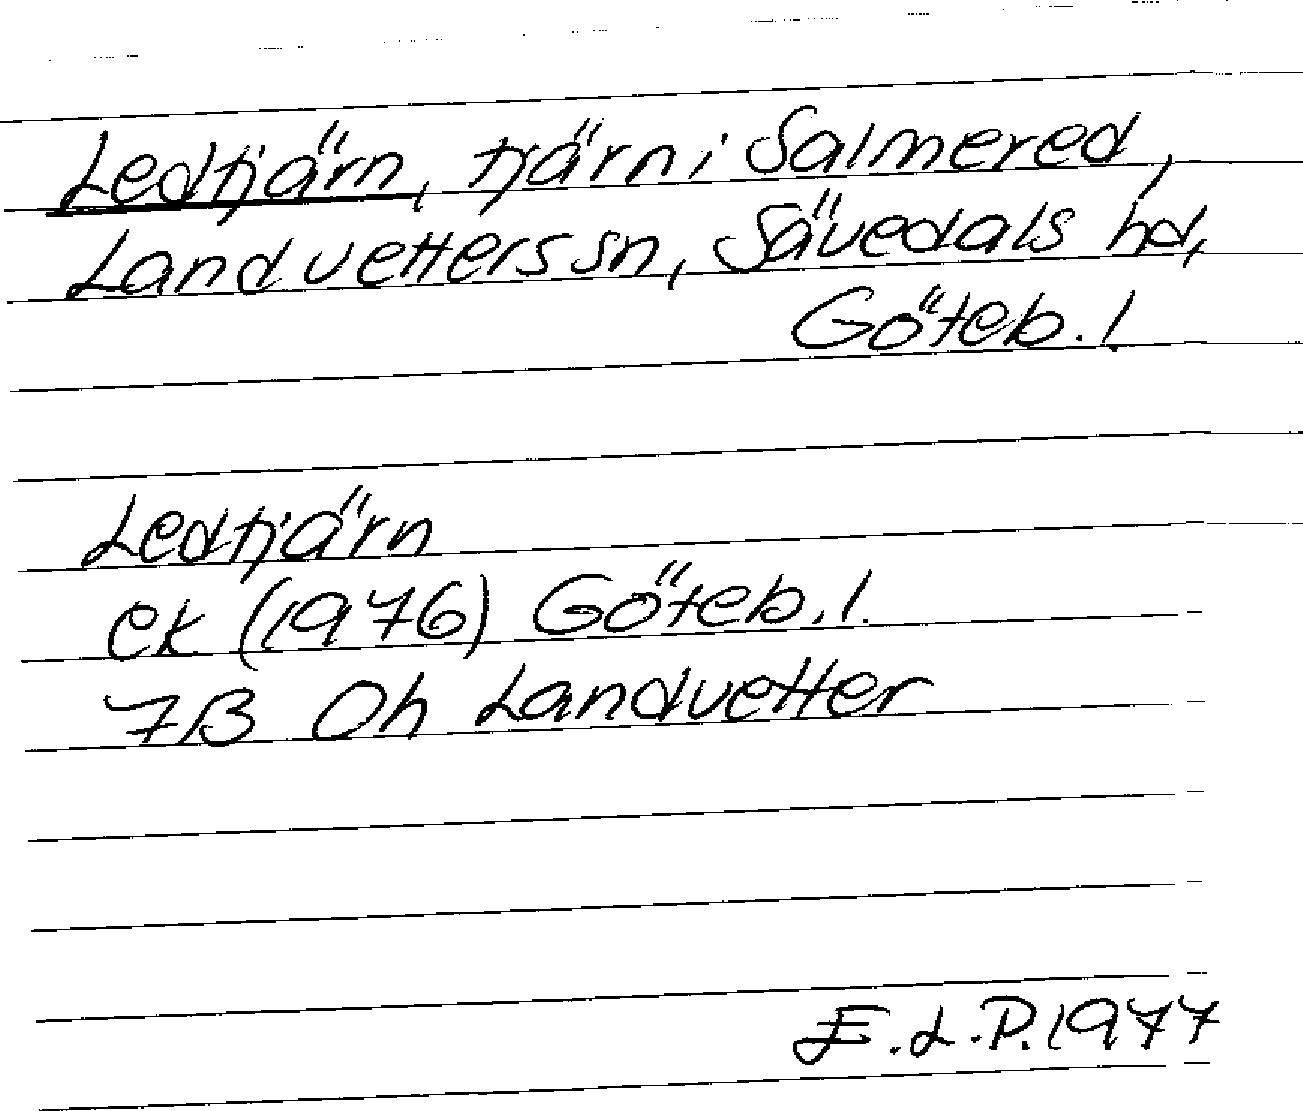 Ledtjärn, tjärn i Salmered,
Landvetters sn, Sävedals hd,
Göteb. l
Ledtjärn
ek (1976) Göteb. l.
7B 0h Landvetter
E.L.P. 1977